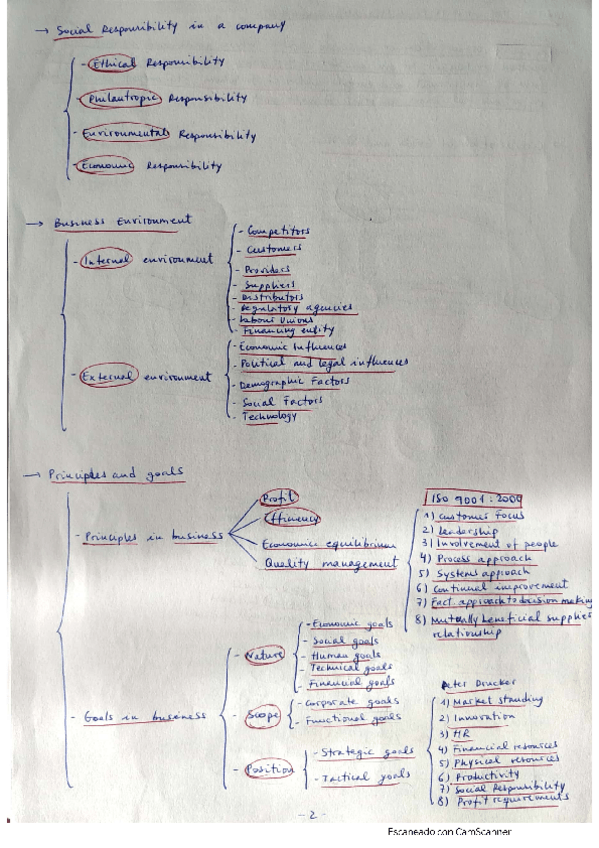 → Social Responsibility in a company
- Ethical Responsibility
- Philantropic Responsibility
- Environmental Responsibility
- Economic Responsibility
→ Business Environment
- Internal environment
- Competitors
- Customers
- Providers
- Suppliers
- Distributors
- Regulatory agencies
- Labour Unions
- Financing entity
- External environment
- Economic Influences
- Political and legal influences
- Demographic Factors
- Social Factors
- Technology
→ Principles and goals
- Principles in business
Profit
Efficiency
Economic equilibrium
Quality management
ISO 9001:2000
1) Customer Focus
2) Leadership
3) Involvement of people
4) Process approach
5) Systems approach
6) Continual improvement
7) Fact approach to decision making
8) Mutually beneficial supplier
relationship
- Goals in business
- Nature
- Economic goals
- Social goals
- Human goals
- Technical goals
- Financial goals
- Scope
- Corporate goals
- Functional goals
- Position
- Strategic goals
- Tactical goals
Peter Drucker
1) Market standing
2) Innovation
3) HR
4) Financial resources
5) Physical resources
6) Productivity
7) Social Responsibility
8) Profit requirements
- 2 -
Escaneado con CamScanner